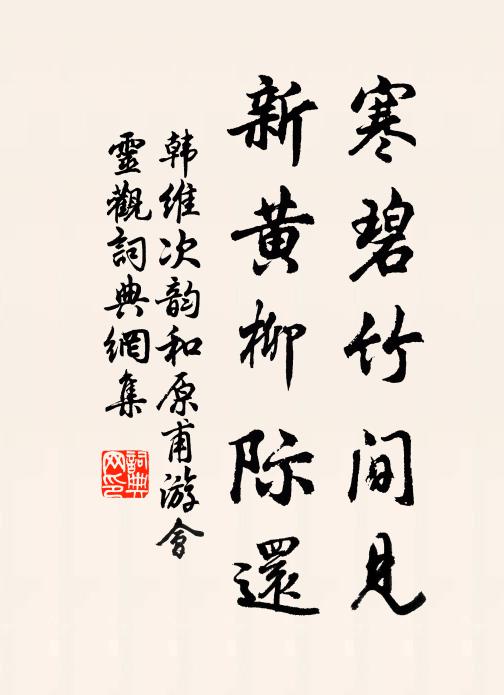 寒碧竹间见
新黄柳际還
韩维次韵和原甫游會
靈觀詞典網集
詞典网印